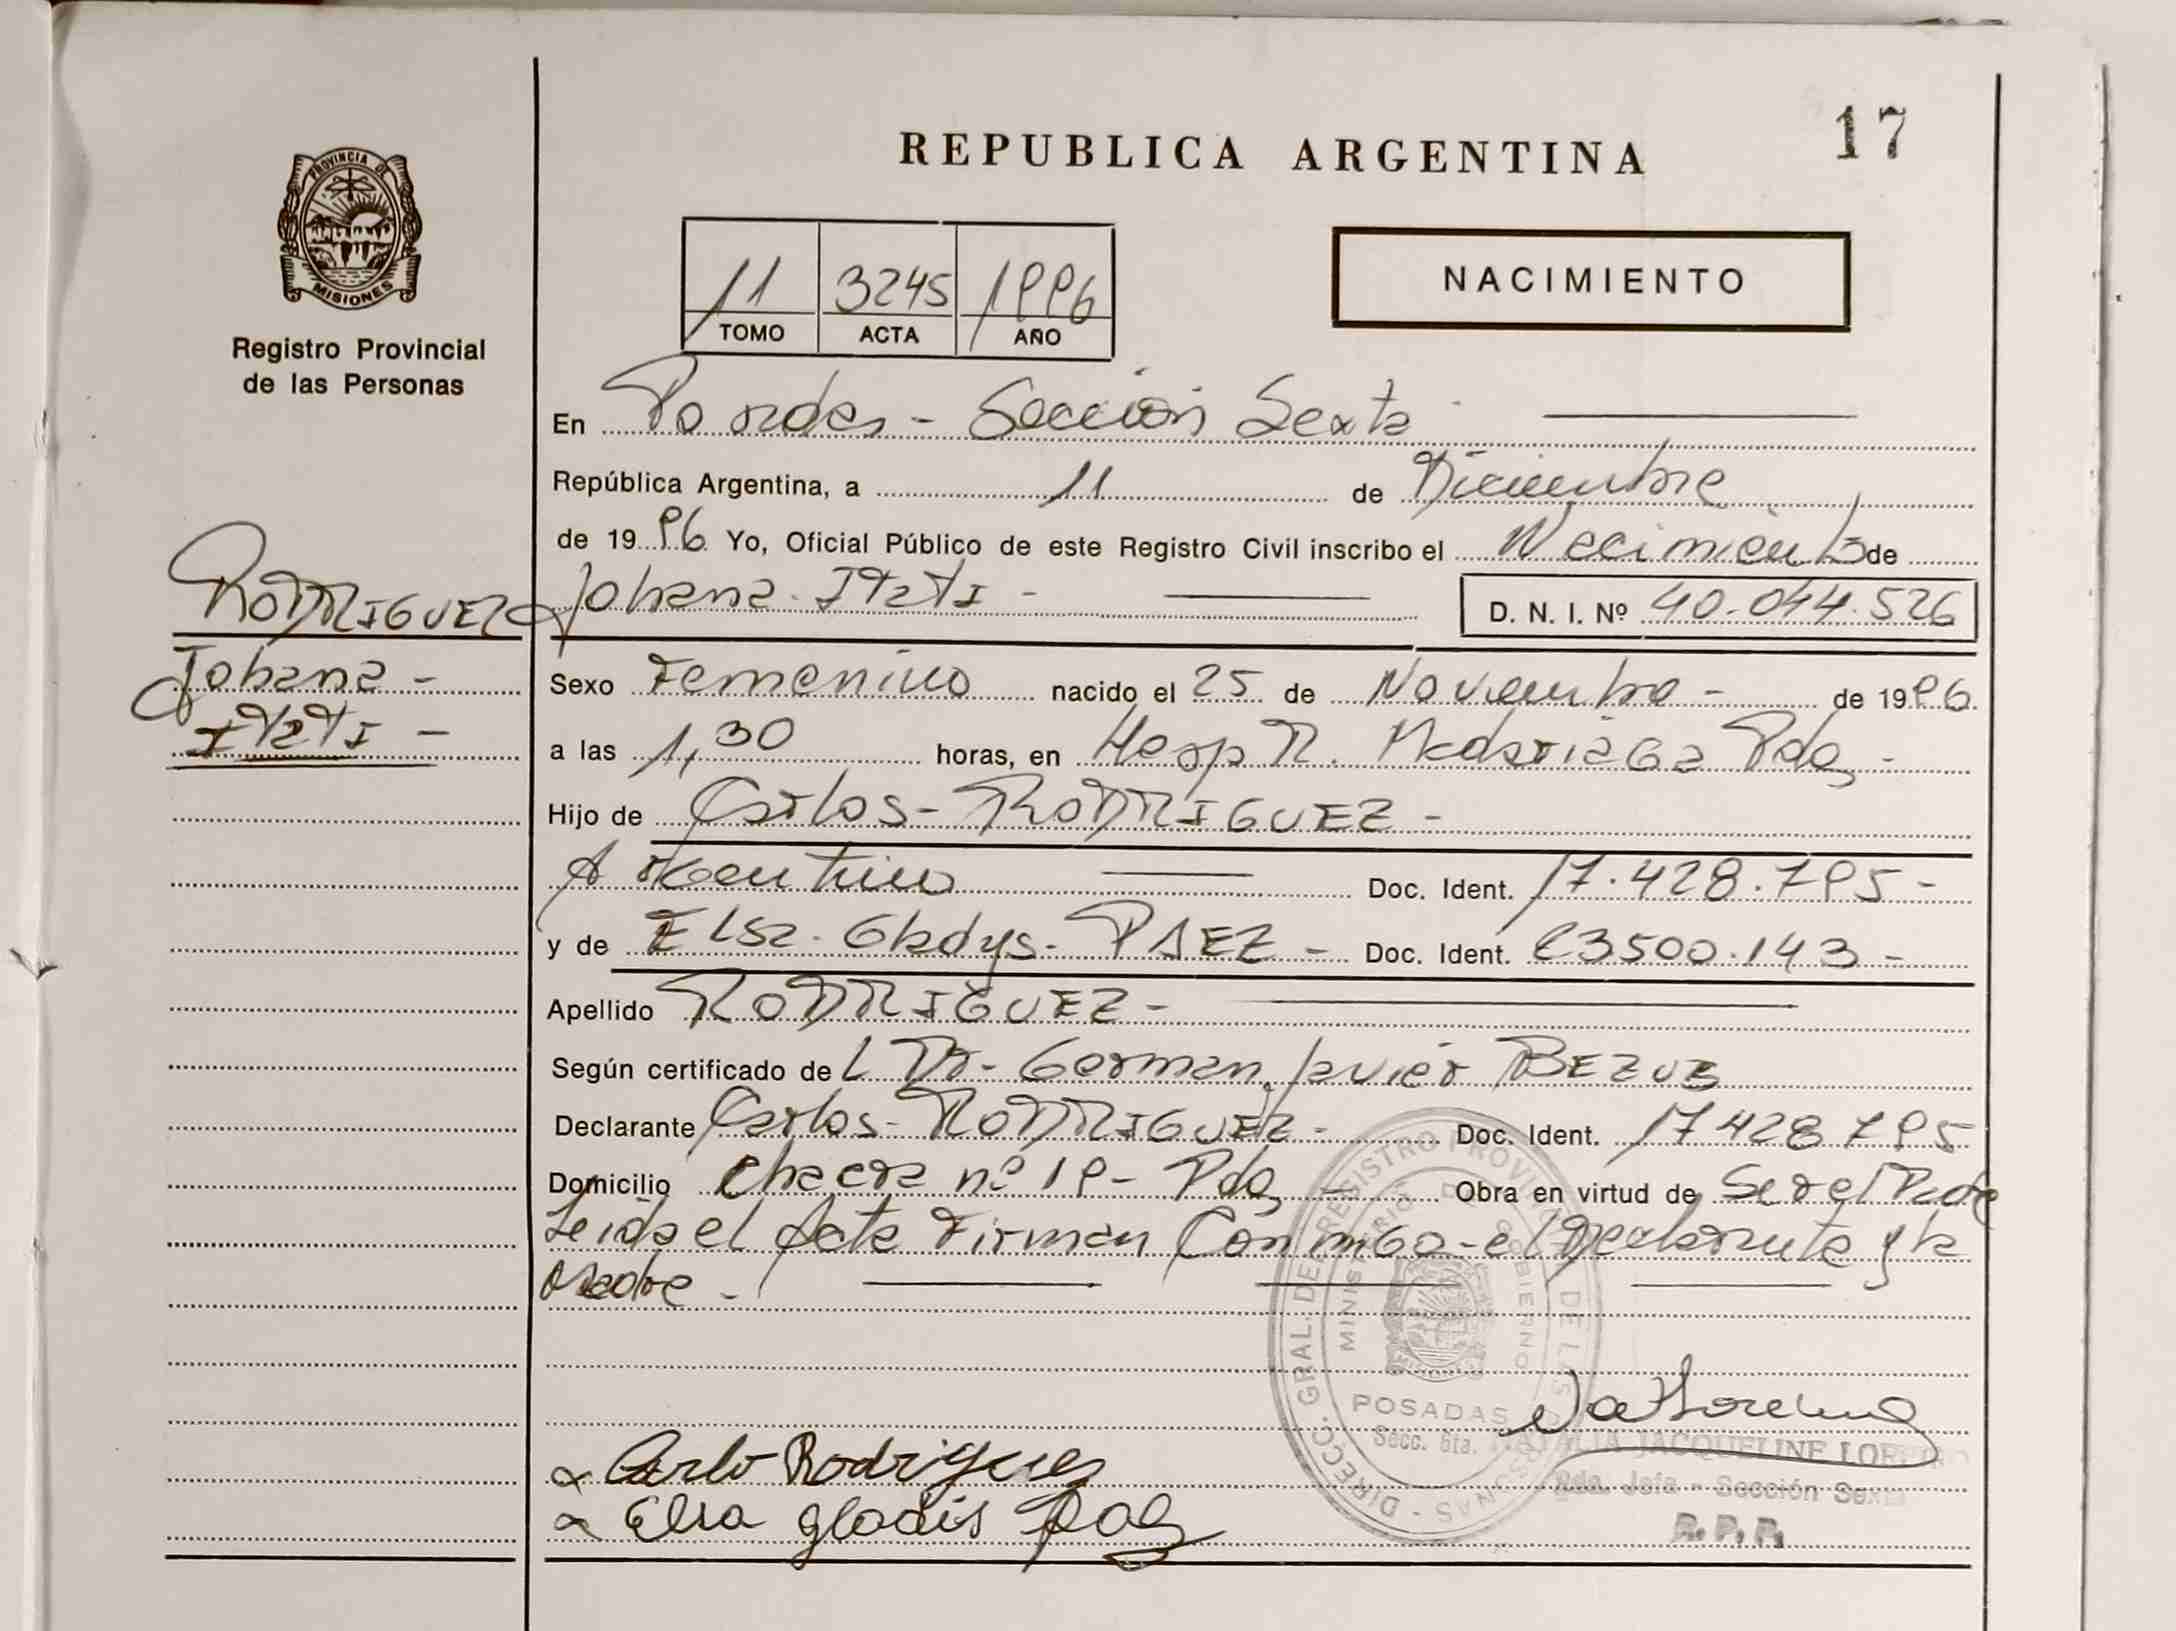 17
REPUBLICA ARGENTINA
PROVINCIA DE
MISIONES
Registro Provincial
de las Personas
11 3245 1996
TOMO ACTA AÑO
NACIMIENTO
En Posadas - Sección Sexta
República Argentina, a 11 de Diciembre
de 1996 Yo, Oficial Público de este Registro Civil inscribo el Nacimiento de
Johana Itatí - D. N. I. Nº 40.044.526
RODRIGUEZ
Johana -
Itatí -
Sexo Femenino nacido el 25 de Noviembre - de 1996.
a las 1,30 horas, en Hosp R. Madariaga Pdas -
Hijo de Carlos - RODRIGUEZ -
Argentino Doc. Ident. 17.428.795 -
y de Elsa Gladys PAEZ - Doc. Ident. 23500.143 -
Apellido RODRIGUEZ -
Según certificado del Dr. German Javier BEZUS
Declarante Carlos - RODRIGUEZ - Doc. Ident. 17428795
Domicilio Chacra nº 19 - Pdas - Obra en virtud de Ser el Padre
Leida el Acta Firman Conmigo - el Declarante y la
Madre -
DIRECC. GRAL. DEL REGISTRO PROVINCIAL DE LAS PERSONAS
MINISTERIO DE GOBIERNO
MISIONES
POSADAS
Secc. 6ta.
NATALIA JACQUELINE LOREIRO
Jefa - Sección Sexta
R. P. P.
Carlo Rodrigues
Elsa gladis paez